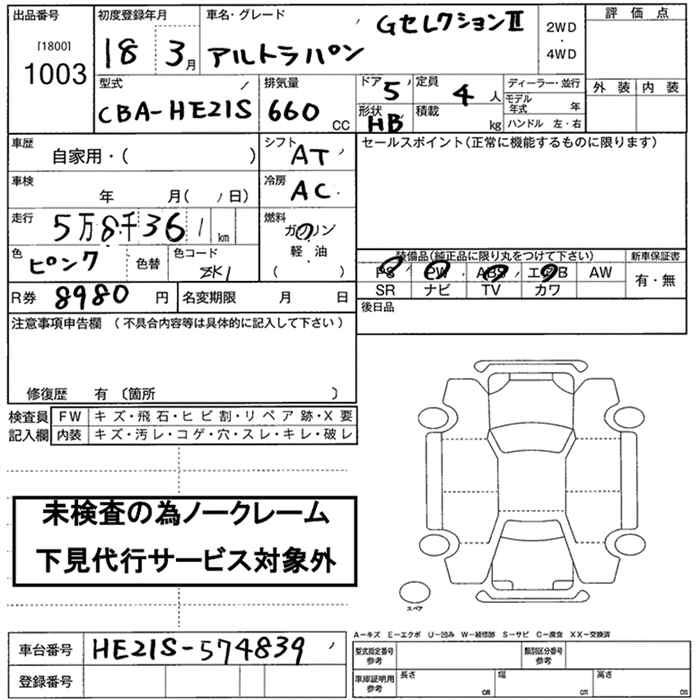 出品番号 初度登録年月 車名・グレード GセレクションⅡ 2WD ・ 4WD 評価点
[1800] 1003 18 3月 アルトラパン 外装 内装
型式 CBA-HE21S 排気量 660 CC ドア 5 定員 4人 ディーラー・並行
形状 HB 積載 kg モデル年式 年
ハンドル 左・右
車歴 自家用・( ) シフト AT セールスポイント(正常に機能するものに限ります)
車検 年 月( 日) 冷房 AC
走行 5万8千361 km 燃料 ガソリン
色 ピンク 色替 色コード ZK1 軽油 ( )
装備品(純正品に限り丸をつけて下さい) 新車保証書
PS PW ABS エアB AW 有・無
R券 8980円 名変期限 月 日 SR ナビ TV カワ
注意事項申告欄 (不具合内容等は具体的に記入して下さい) 後日品
修復歴 有 (箇所 )
検査員 FW キズ・飛石・ヒビ割・リペア跡・X要
記入欄 内装 キズ・汚レ・コゲ・穴・スレ・キレ・破レ
未検査の為ノークレーム
下見代行サービス対象外
スペア
A-キズ E-エクボ U-凹み W-補修跡 S-サビ C-腐食 XX-交換済
車台番号 HE21S-574839 型式指定番号 参考 類別区分番号 参考
登録番号 車庫証明用 参考 長さ cm 幅 cm 高さ cm